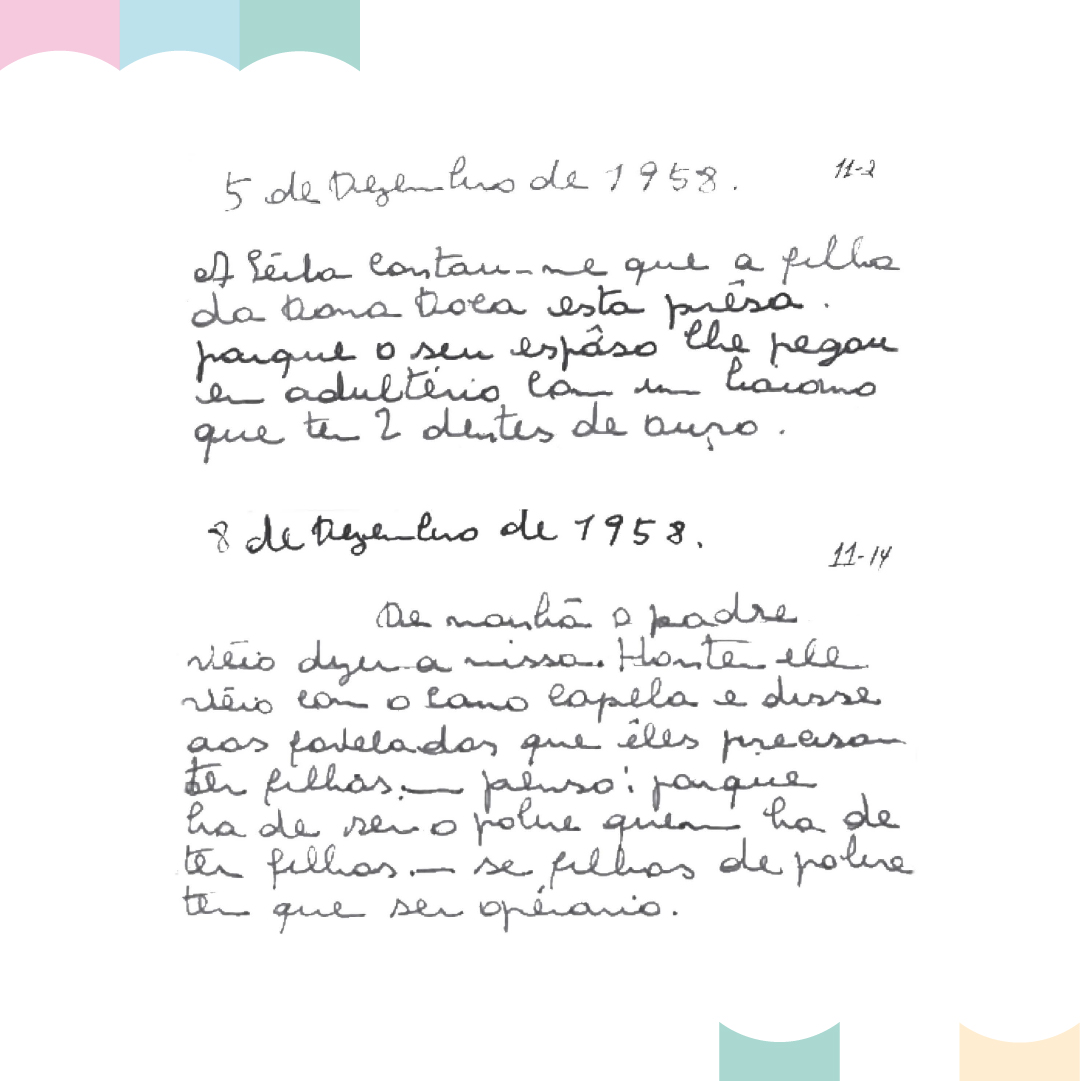 5 de Dezembro de 1958. 11-2
A Léila contou-me que a filha
da Dona Doca esta prêsa.
porque o seu espôso lhe pegou
em adultério com um baiano
que tem 2 dentes de ouro.
8 de Dezembro de 1958. 11-14
De manhã o padre
vêio dizer a missa. Honten ele
vêio com o carro capela e disse
aos favelados que êles precisam
ter filhos.— penso: porque
ha de ser o pobre quem ha de
ter filhos.— se filhos de pobre
tem que ser opérario.